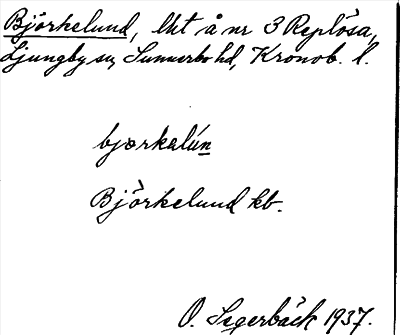 Björkelund, lht å nr 3 Replösa,
Ljungby sn, Sunnerbo hd, Kronob. l.
bjørkəlún
Björkelund kb.
O. Segerbäck 1937.